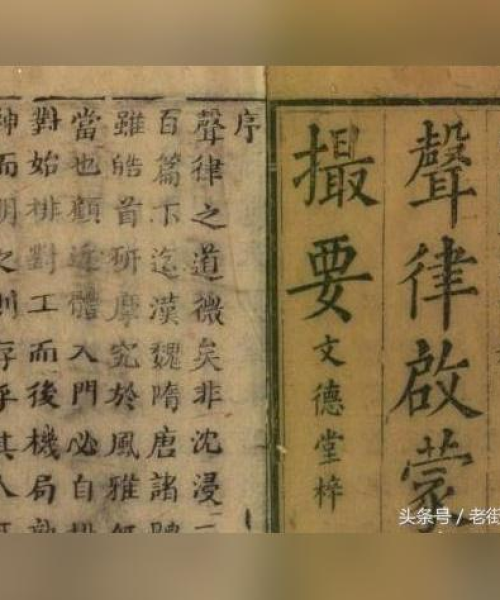 聲律啟蒙
撮要
文德堂梓
序
聲律之道微矣非沈浸
百篇下迄漢魏隋唐諸
雖皓首研摩究於風雅
當也顧近體入門必自
對始排對工而後機局
神而明之則存乎其人
头条号 / 老街